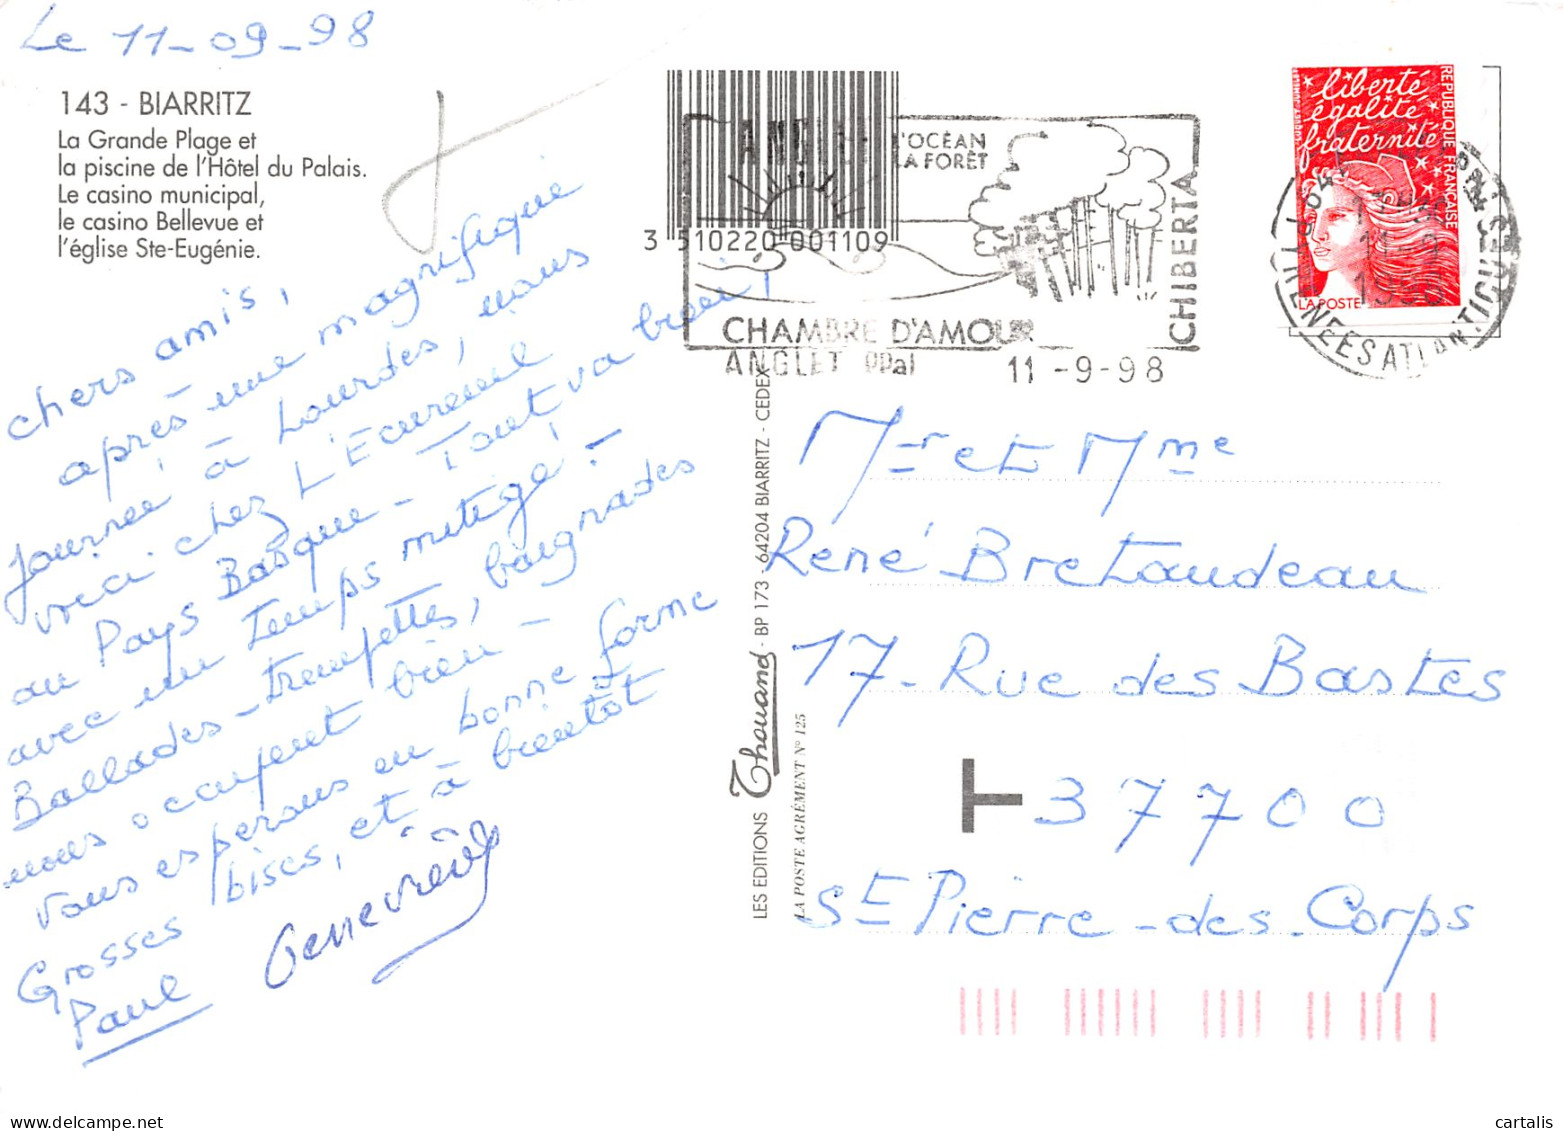 Le 11-09-98
143 - BIARRITZ
La Grande Plage et
la piscine de l'Hôtel du Palais.
Le casino municipal,
le casino Bellevue et
l'église Ste-Eugénie.
chers amis,
après une magnifique
journée à Lourdes, nous
voici chez L'Ecureuil
au Pays Basque - Tout va bien,
avec un temps mitigé! -
Ballades - trempettes, baignades
nous occupent bien -
Vous espérons en bonne forme
Grosses bises, et à bientôt
Paul Geneviève
3 510220 001109
ANGLET
L'OCÉAN
LA FORÊT
CHIBERTA
CHAMBRE D'AMOUR
ANGLET PPal
11 -9-98
liberté
égalité
fraternité
RÉPUBLIQUE FRANÇAISE
LA POSTE
PYRENEES ATLANTIQUES
LES EDITIONS Thouand - BP 173 - 64204 BIARRITZ - CEDEX
LA POSTE AGRÉMENT N° 125
Mr et Mme
René Bretaudeau
17 - Rue des Bastes
T 37700
St Pierre-des-Corps
cartalis